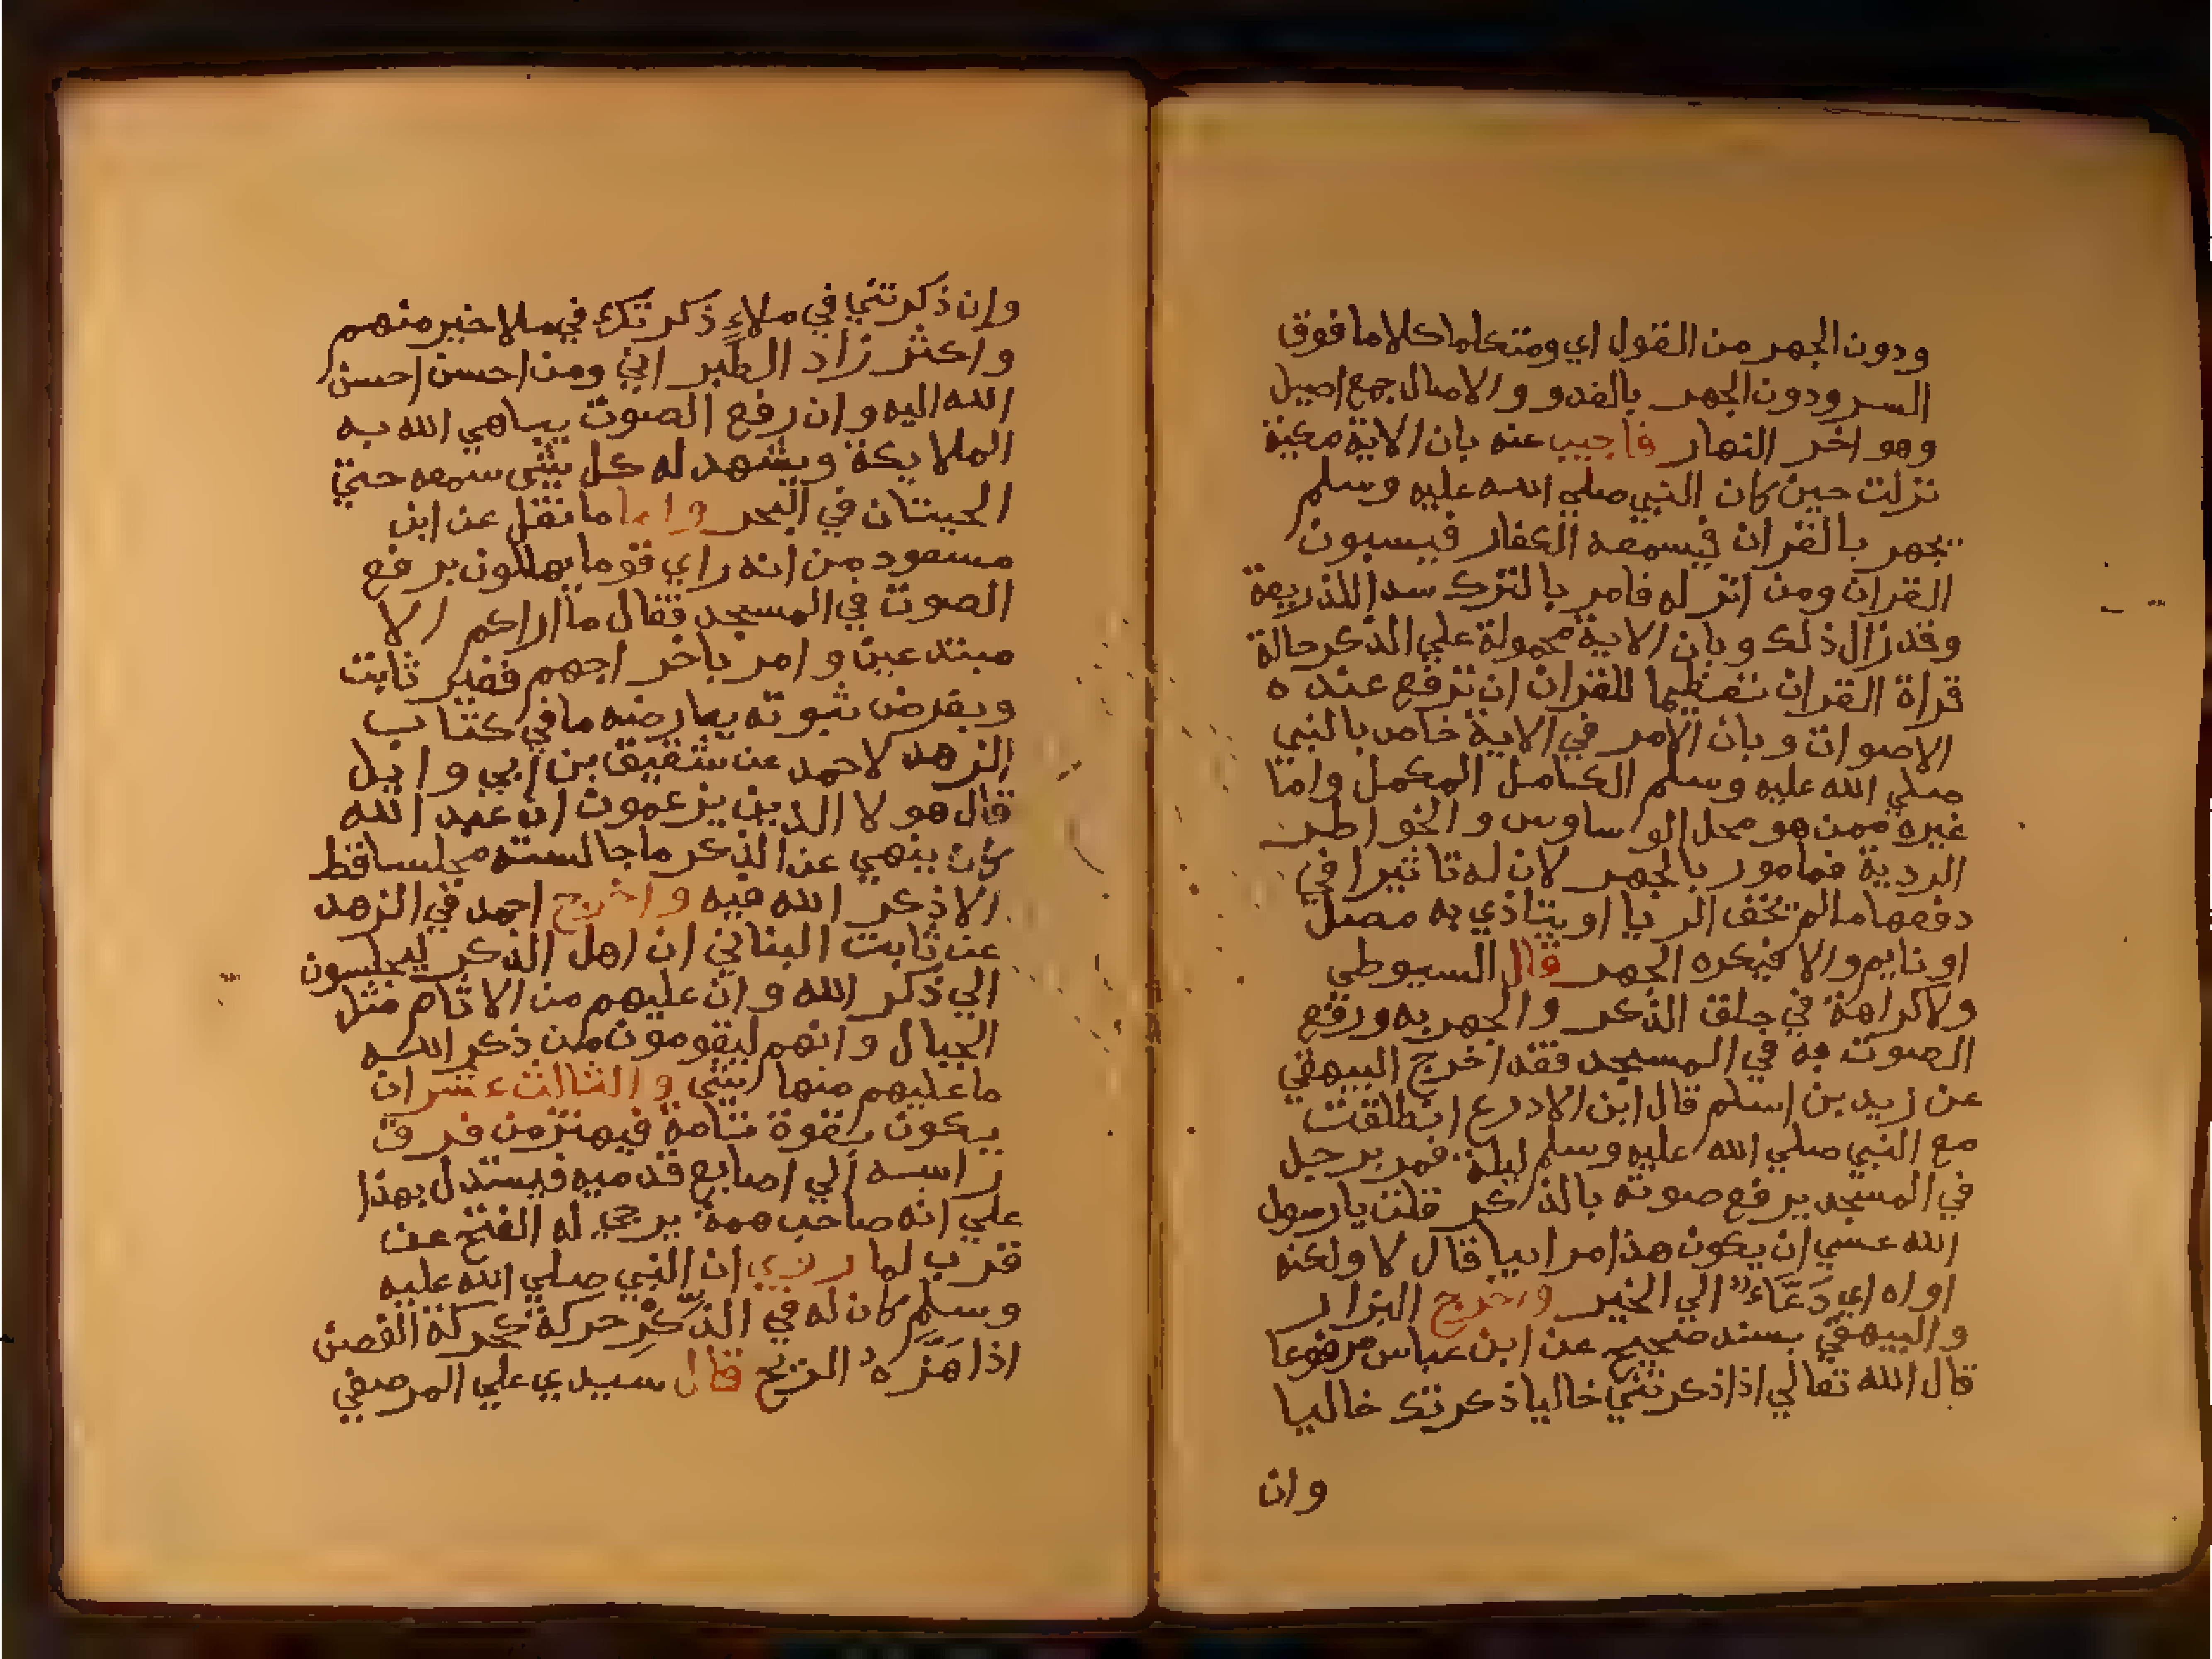 ودون الجهر من القول اي ومتكلما كلاما فوق
السر ودون الجهر بالغدو والاصال جمع اصيل
وهو اخر النهار فاجيب عنه بان الاية مكية
نزلت حين كان النبي صلي الله عليه وسلم
يجهر بالقران فيسمعه الكفار فيسبون
القران ومن انزله فامر بالترك سدا للذريعة
وقد زال ذلك وبان الاية محمولة علي الذكر حالة
قراة القران تعظيما للقران ان ترفع عنده
الاصوات وبان الامر في الاية خاص بالنبي
صلي الله عليه وسلم الكامل المكمل واما
غيره ممن هو محل الوساوس والخواطر
الردية فمامور بالجهر لان له تاثيرا في
دفعها مالم يخف الريا او يتاذي به مصل
او نايم والا فيكره الجهر قال السيوطي
ولا كراهة في حلق الذكر والجهر به ورفع
الصوت به في المسجد فقد اخرج البيهقي
عن زيد بن اسلم قال ابن الادرع انطلقت
مع النبي صلي الله عليه وسلم ليلة فمر برجل
في المسجد يرفع صوته بالذكر قلت يا رسول
الله عسي ان يكون هذا مراييا قال لا ولكنه
اواه اي دَعَّاءٌ الي الخير واخرج البزار
والبيهقي بسند صحيح عن ابن عباس مرفوعا
قال الله تعالي اذا ذكرتني خاليا ذكرتك خاليا
وان
وان ذكرتني في ملاءٍ ذكرتك في ملا خير منهم
واكثر زاد الطبراني ومن احسن احسن
الله اليه وان رفع الصوت يباهي الله به
الملايكة ويشهد له كل شي سمعه حتي
الحيتان في البحر واما ما نقل عن ابن
مسعود من انه راي قوما يهللون برفع
الصوت في المسجد فقال ما اراكم الا
مبتدعين وامر باخراجهم فغير ثابت
وبفرض ثبوته يعارضه ما في كتاب
الزهد لاحمد عن شقيق بن ابي وايل
قال هولا الذين يزعمون ان عبد الله
كان ينهي عن الذكر ما جالسته مجلسا قط
الا ذكر الله فيه واخرج احمد في الزهد
عن ثابت البناني ان اهل الذكر ليجلسون
الي ذكر الله وان عليهم من الاثام مثل
الجبال وانهم ليقومون من ذكر الله
ما عليهم منها شي والثالث عشر ان
يكون بقوة تامة فيهتز من فرق
راسه الي اصابع قدميه فيستدل بهذا
علي انه صاحب همة يرجي له الفتح عن
قرب لما روي ان النبي صلي الله عليه
وسلم كان له في الذِّكْرِ حركة كحركة الغصن
اذا هَزَّهُ الريح قال سيدي علي المرصفي